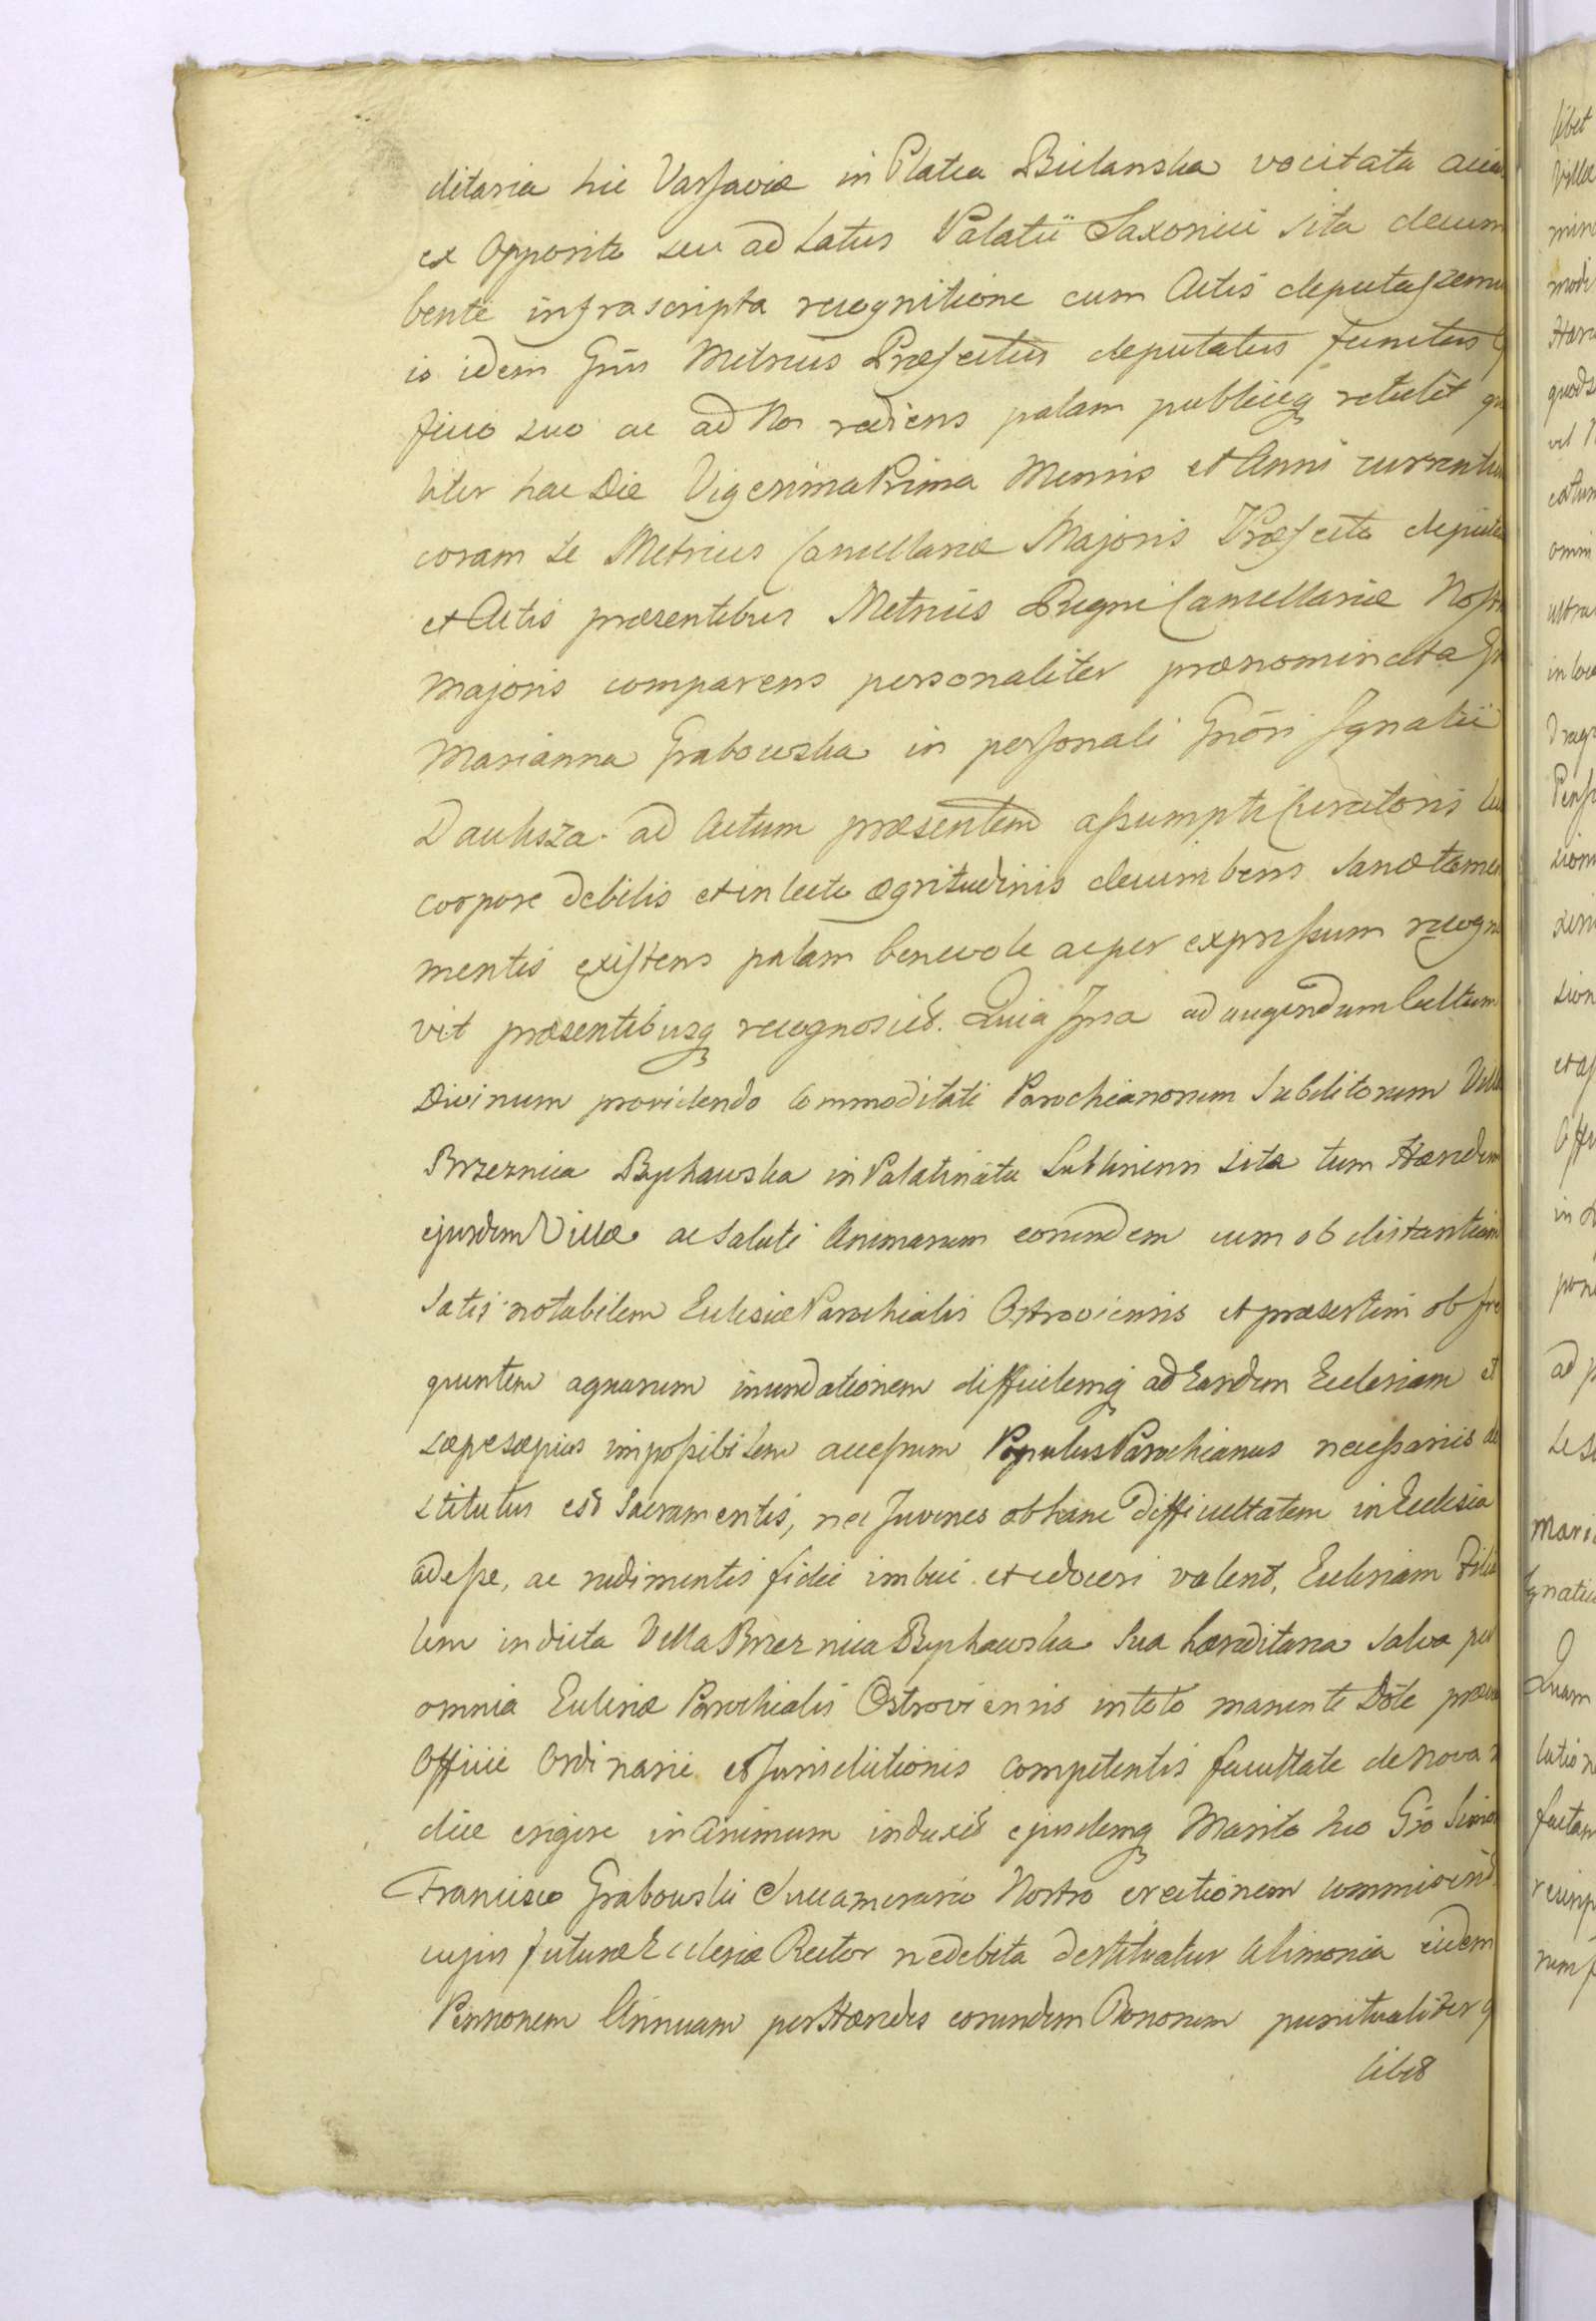 ditaria hic Varsaviæ in Platea Bielanska vocitata acia
ex Opposito seu ad Latus Palatii Saxonici sita decum
bente infrascripta recognitione cum Actis deputassemu
is idem Gnus Metrices Præfectus deputatus functus
ficio suo ac ad Nos rediens palam publiceq retulit qu
liter hac Die Vigesima Prima Mensis et Anni currentium
coram se Metrices Cancellariæ Majoris Præfecto deputa
et Actis præsentibus Metrices Regni Cancellariæ Nostr
Majoris comparens personaliter prænominata Gn
Marianna Grabowska in personali Gnōsi Ignatii
Dauksza ad Actum præsentem assumpti Curatoris su
corpore debilis et in lecto ægritudinis decumbens sanæ tamen
mentis existens palam benevole ac per expressum recogno
vit præsentibusq recognoscit. Quia Ipsa ad augendum Cultum
Divinum providendo Commoditati Parochianorum Subditorum Villæ
Brzeznica Bychawska in Palatinatu Lublinensi sitæ tum Hæredum
ejusdem Villæ ac Saluti Animarum eorundem cum ob distantiam
Satis notabilem Eclesiæ Parochialis Ostroviensis et præsertim ob fre
quentem aquarum inundationem difficilemq ad Eandem Ecclesiam et
sæpe sæpius impossibilem accessum Populus Parochianus necessariis de
stitutus est Sacramentis, nec Juvenes ob hanc difficultatem in Ecclesia
adesse, ac rudimentis fidei imbui et edoceri valent, Ecclesiam Filia
lem in dicta Villa Brzeznica Bychawska sua hæreditaria salva per
omnia Eclesiæ Parochialis Ostroviensis in toto manente Dote præv
Officii Ordinarii et Jurisdictionis competentis facultate de nova
dice erigere in animum induxit ejusdemq Marito suo Gso
Francisco Grabowski Succamerario Nostro erectionem commisit
cujus futuræ Ecclesiæ Rector ne debita destituatur Alimonia eidem
Pensionem Annuam per Hæredes eorundem Bonorum punctualiter q
libet